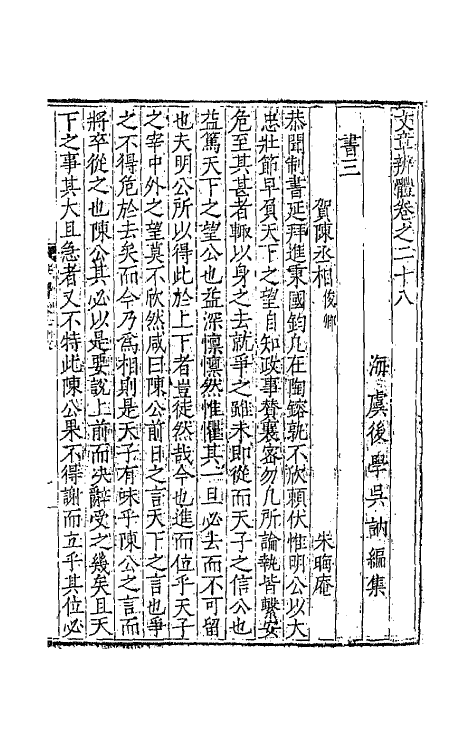 文章辨體卷之二十八
海虞後學吳訥編集
書三
賀陳丞相俊卿 朱晦庵
恭聞制書延拜進秉國鈞凡在陶鎔孰不欣頼伏惟明公以大
忠壯節早負天下之望自知政事賛襄密勿凡所論執皆繫安
危至其甚者輒以身之去就爭之雖未即從而天子之信公也
益篤天下之望公也益深懍懍然惟懼其一旦必去而不可留
也夫明公所以得此於上下者豈徒然哉今也進而位乎天子
之宰中外之望莫不欣然咸曰陳公前日之言天下之言也爭
之不得危於去矣而今乃爲相則是天子有味乎陳公之言而
將卒從之也陳公其必以是要說上前而决辭受之幾矣且天
下之事其大且急者又不特此陳公果不得謝而立乎其位必